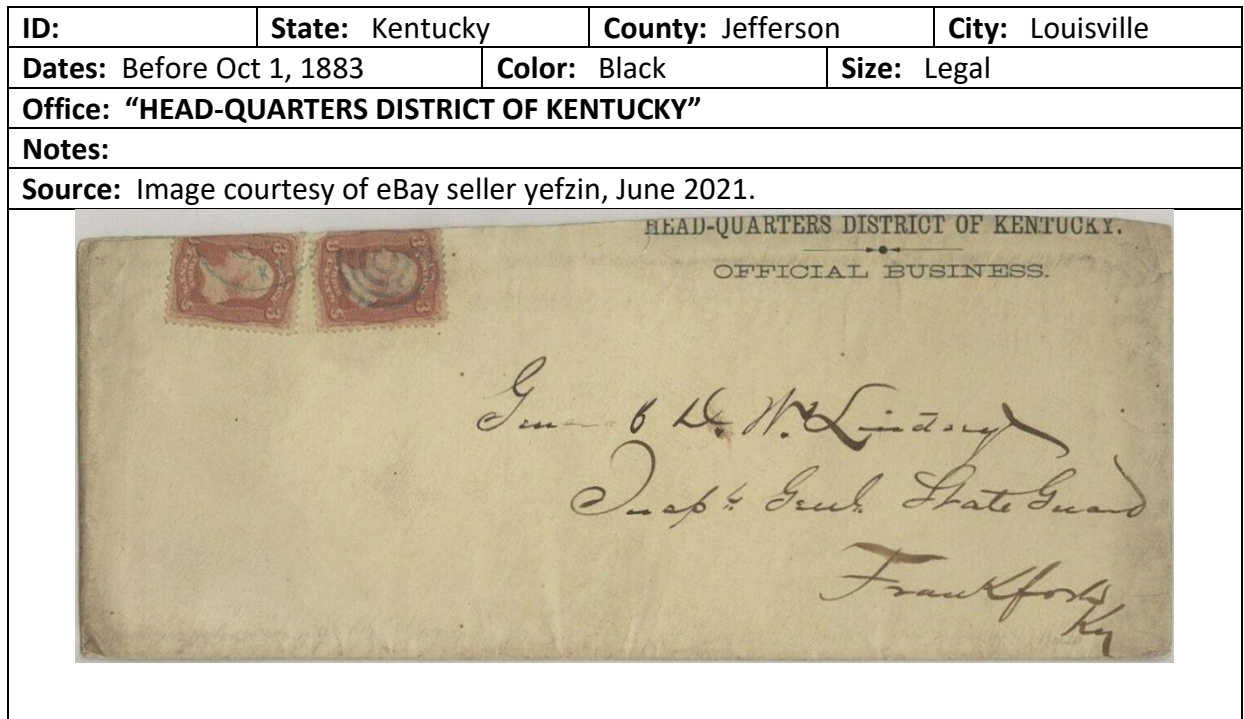 ID: State: Kentucky County: Jefferson City: Louisville
Dates: Before Oct 1, 1883 Color: Black Size: Legal
Office: “HEAD-QUARTERS DISTRICT OF KENTUCKY”
Notes:
Source: Image courtesy of eBay seller yefzin, June 2021.
HEAD-QUARTERS DISTRICT OF KENTUCKY.
OFFICIAL BUSINESS.
D. W. Lindsey
Genl. State Guard
Frankfort
Ky